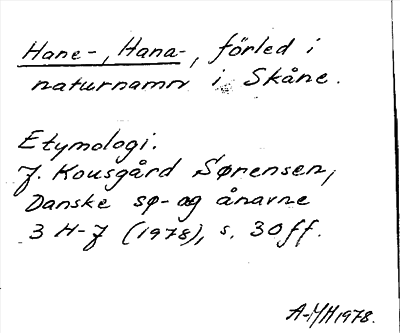 Hane-, Hana-, förled i
naturnamn i Skåne.
Etymologi.
J. Kousgård Sørensen,
Danske sø- og ånavne
3 H-J (1978), s. 30ff.
A-MH 1978.